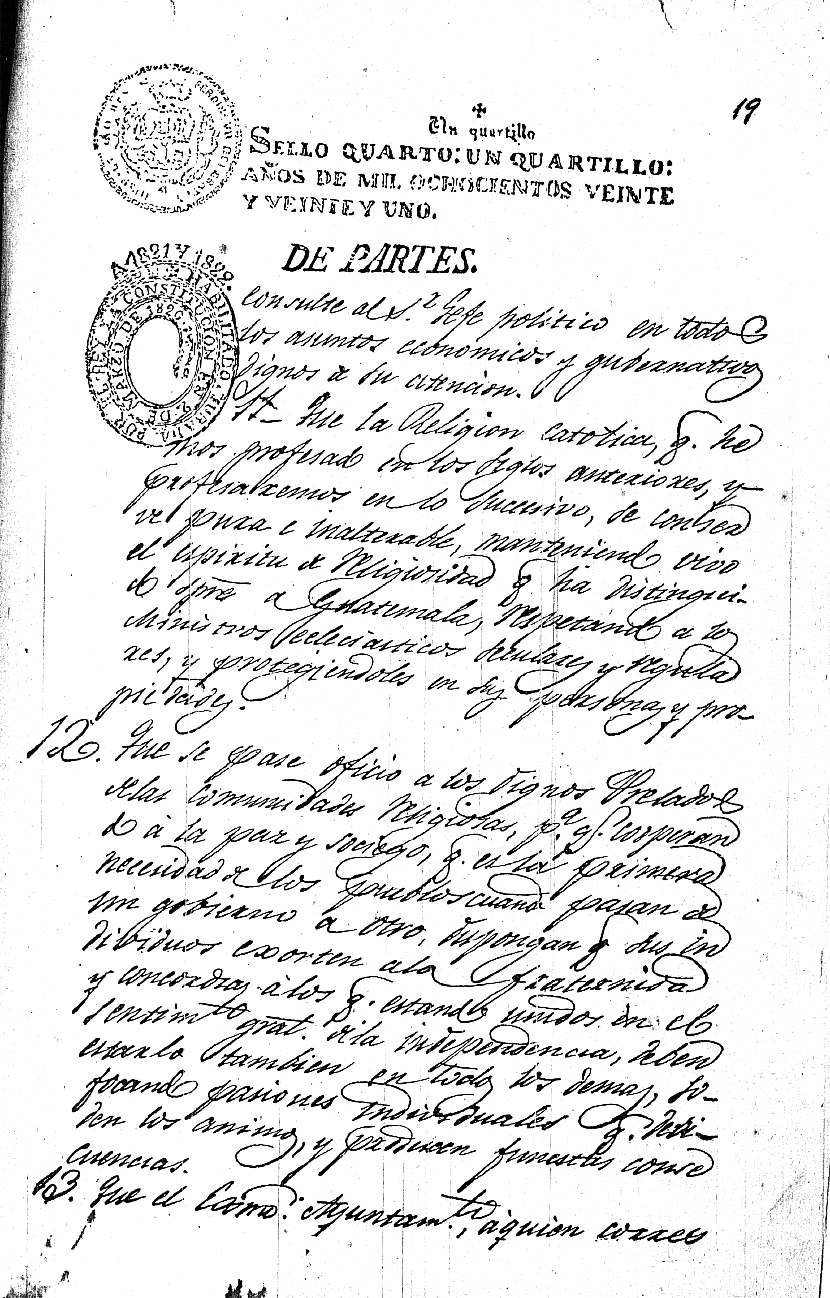 19
Un quartillo
SELLO QUARTO: UN QUARTILLO:
AÑOS DE MIL OCHOCIENTOS VEINTE
Y VEINTE Y UNO.
DE PARTES.
A 1821 Y 1822.
HABILITADO, JURADA POR EL REY LA CONSTITUCION EN 9 DE MARZO DE 1820.
consulte al S.r Gefe politico en todos
los asuntos economicos y gubernativos
dignos de su atencion.
11. Que la Religion catolica, q. he
mos profesado en los siglos anteriores, y
profesaremos en lo sucesivo, se conser
ve pura e inalterable, manteniendo vivo
el espiritu de religiosidad q ha distingui-
do spre a Guatemala, respetando a los
Ministros eclesiasticos seculares y regula
res, y protegiendoles en sus personas y pro-
piedades.
12. Que se pase oficio a los dignos Prelados
de las comunidades Religiosas, p.a q. cooperan
do à la paz y sociego, q. es la primera
necesidad de los pueblos cuando pasan de
un gobierno a otro, dispongan q sus in
dividuos exorten a la fraternidad
y concordia à los q. estando unidos en el
sentim.to gral. de la independencia, deben
estarlo tambien en todos los demas, so-
focando pasiones individuales q. divi-
den los animos, y producen funestas conse
cuencias.
13. Que el Exmo. Ayuntam.to, à quien corres